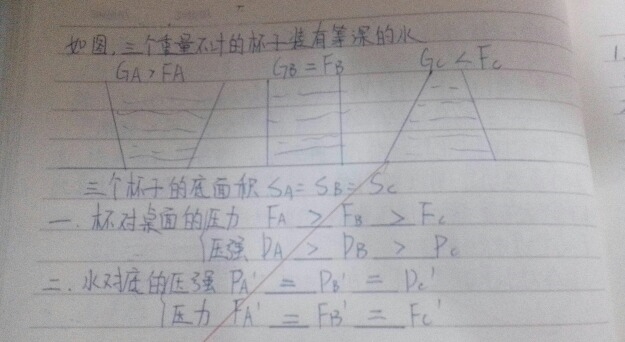 如图,三个重量不计的杯子装有等深的水
GA>FA GB=FB GC<FC
三个杯子的底面积 SA=SB=SC
一.杯对桌面的压力 FA > FB > FC
压强 PA > PB > PC
二.水对底的压强 PA' = PB' = PC'
压力 FA' = FB' = FC'